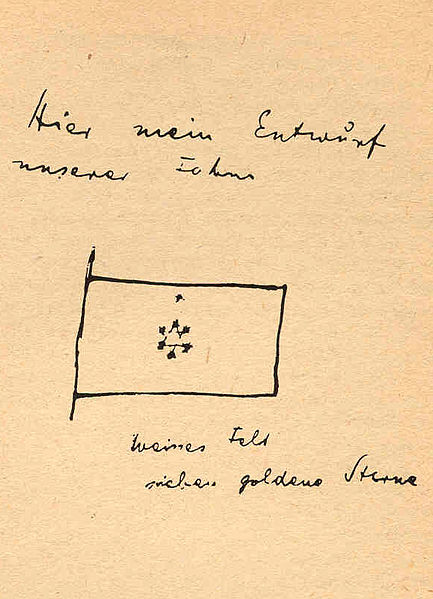 Hier mein Entwurf
unserer Fahne
Weisses Feld
sieben goldene Sterne